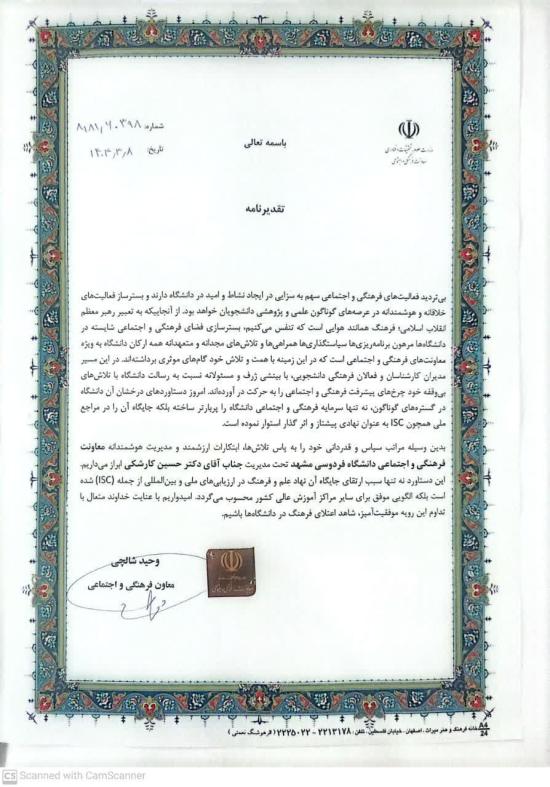 شماره: ۸۱۸۱/۶۰۳۹۸
تاریخ: ۱۴۰۳/۳/۸
باسمه تعالی
وزارت علوم، تحقیقات و فناوری
معاونت فرهنگی و اجتماعی
تقدیرنامه
بی‌تردید فعالیت‌های فرهنگی و اجتماعی سهم به سزایی در ایجاد نشاط و امید در دانشگاه دارند و بسترساز فعالیت‌های
خلاقانه و هوشمندانه در عرصه‌های گوناگون علمی و پژوهشی دانشجویان خواهد بود. از آنجاییکه به تعبیر رهبر معظم
انقلاب اسلامی؛ فرهنگ همانند هوایی است که تنفس می‌کنیم، بسترسازی فضای فرهنگی و اجتماعی شایسته در
دانشگاه‌ها مرهون برنامه‌ریزی‌ها سیاستگذاری‌ها همراهی‌ها و تلاش‌های مجدانه و متعهدانه همه ارکان دانشگاه به ویژه
معاونت‌های فرهنگی و اجتماعی است که در این زمینه با همت و تلاش خود گام‌های موثری برداشته‌اند. در این مسیر
مدیران کارشناسان و فعالان فرهنگی دانشجویی، با بینشی ژرف و مسئولانه نسبت به رسالت دانشگاه با تلاش‌های
بی‌وقفه خود چرخ‌های پیشرفت فرهنگی و اجتماعی را به حرکت در آورده‌اند. امروز دستاوردهای درخشان آن دانشگاه
در گستره‌های گوناگون، نه تنها سرمایه فرهنگی و اجتماعی دانشگاه را پربارتر ساخته بلکه جایگاه آن را در مراجع
ملی همچون ISC به عنوان نهادی پیشتاز و اثر گذار استوار نموده است.
بدین وسیله مراتب سپاس و قدردانی خود را به پاس تلاش‌ها، ابتکارات ارزشمند و مدیریت هوشمندانه معاونت
فرهنگی و اجتماعی دانشگاه فردوسی مشهد تحت مدیریت جناب آقای دکتر حسین کارشکی ابراز می‌داریم.
این دستاورد نه تنها سبب ارتقای جایگاه آن نهاد علم و فرهنگ در ارزیابی‌های ملی و بین‌المللی از جمله (ISC) شده
است بلکه الگویی موفق برای سایر مراکز آموزش عالی کشور محسوب می‌گردد. امیدواریم با عنایت خداوند متعال با
تداوم این رویه موفقیت‌آمیز، شاهد اعتلای فرهنگ در دانشگاه‌ها باشیم.
وحید شالچی
معاون فرهنگی و اجتماعی
خانه فرهنگ و هنر میراث . اصفهان . خیابان فلسطین . تلفن: ۲۲۱۳۱۷۸ - ۲۲۲۵۰۲۲ (فرهوشنگ نعمتی)
A4
24
CS Scanned with CamScanner